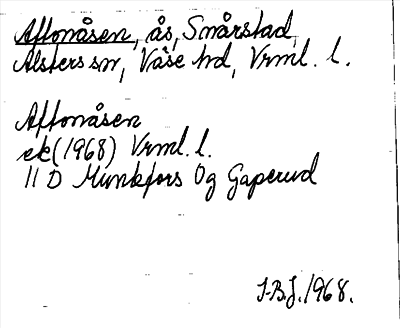 Aftonåsen, ås, Smårstad,
Alsters sn, Väse hd, Vrml. l.
Aftonåsen
ek (1968) Vrml. l.
11 D Munkfors 0g Gaperud
I-B.J. 1968.